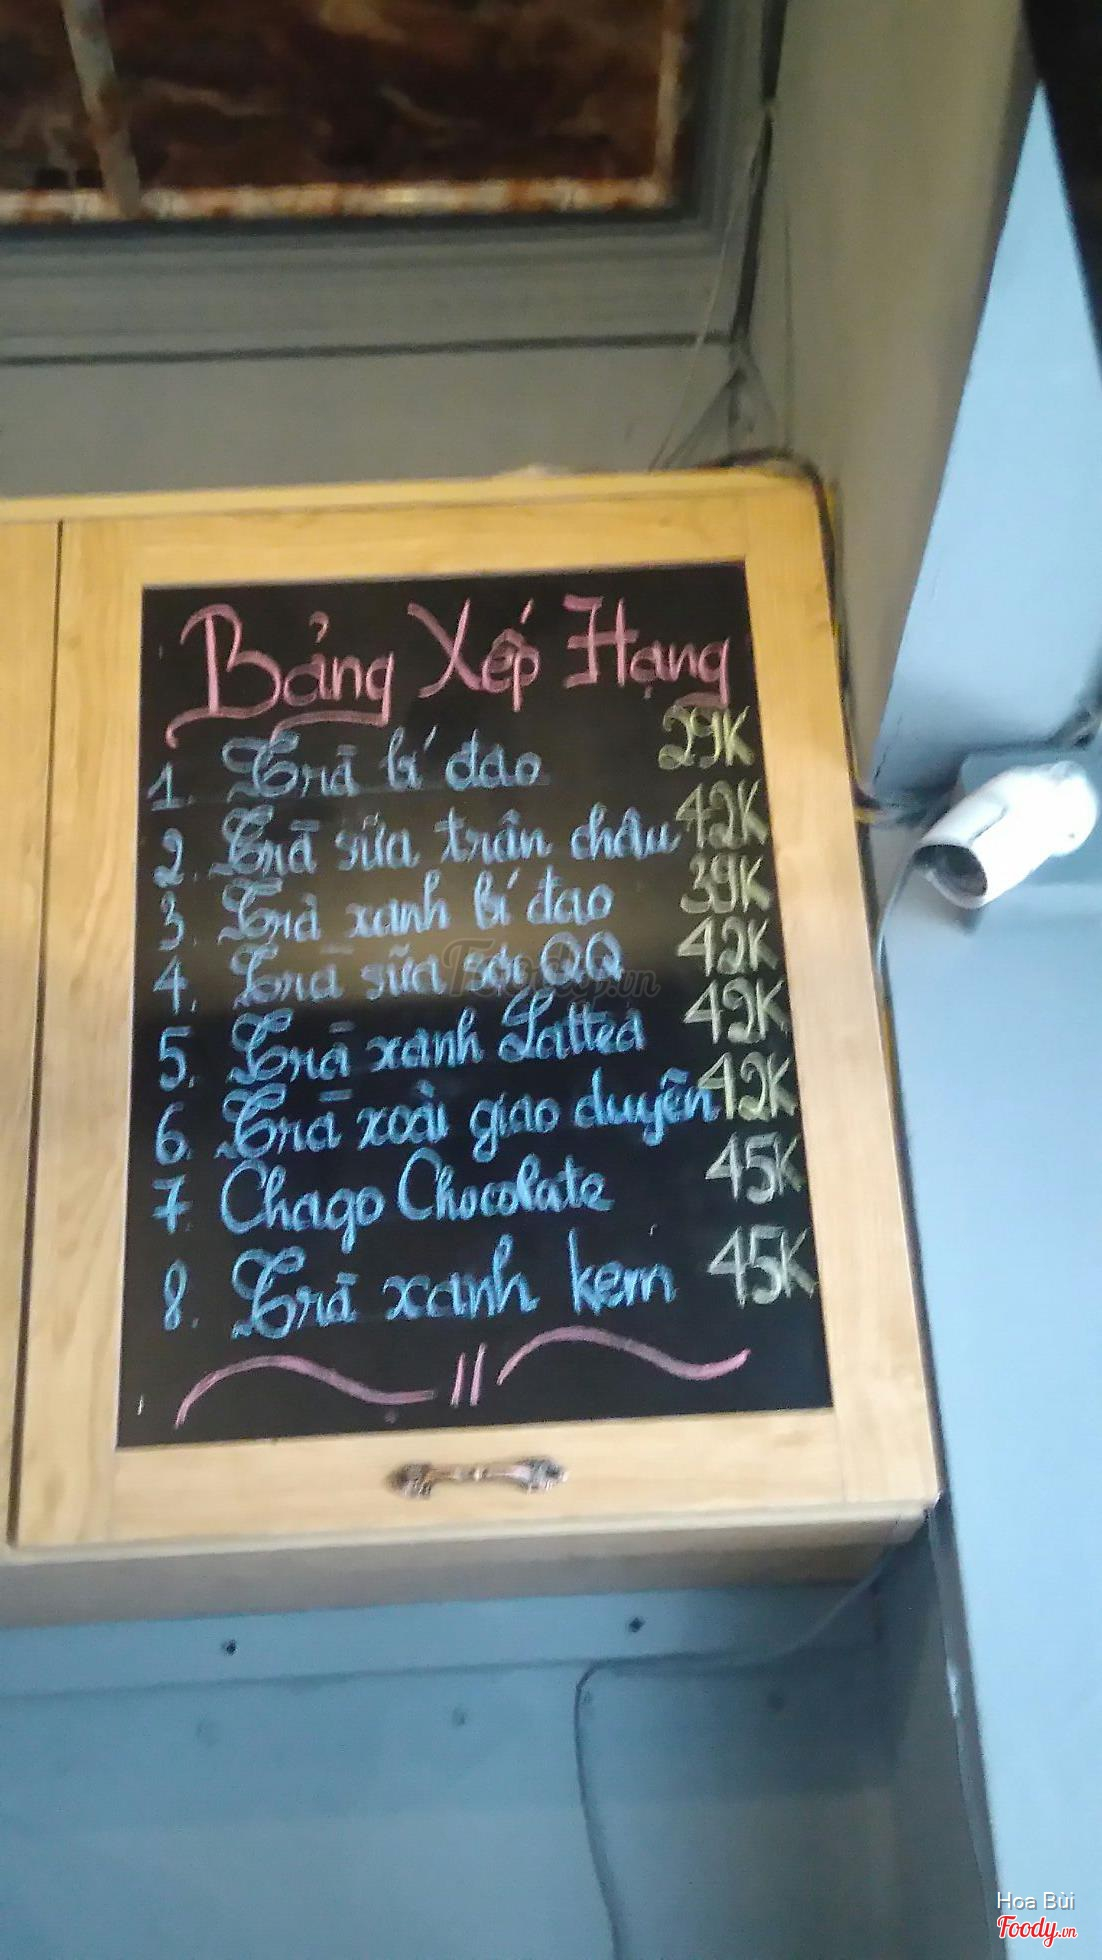 Bảng Xếp Hạng
1. Trà bí đao 29K
2. Trà sữa trân châu 42K
3. Trà xanh bí đao 39K
4. Trà sữa sợi QQ 42K
5. Trà xanh Lattea 49K
6. Trà xoài giao duyên 42K
7. Chago Chocolate 45K
8. Trà xanh kem 45K
Foody.vn
Hoa Bùi
Foody.vn